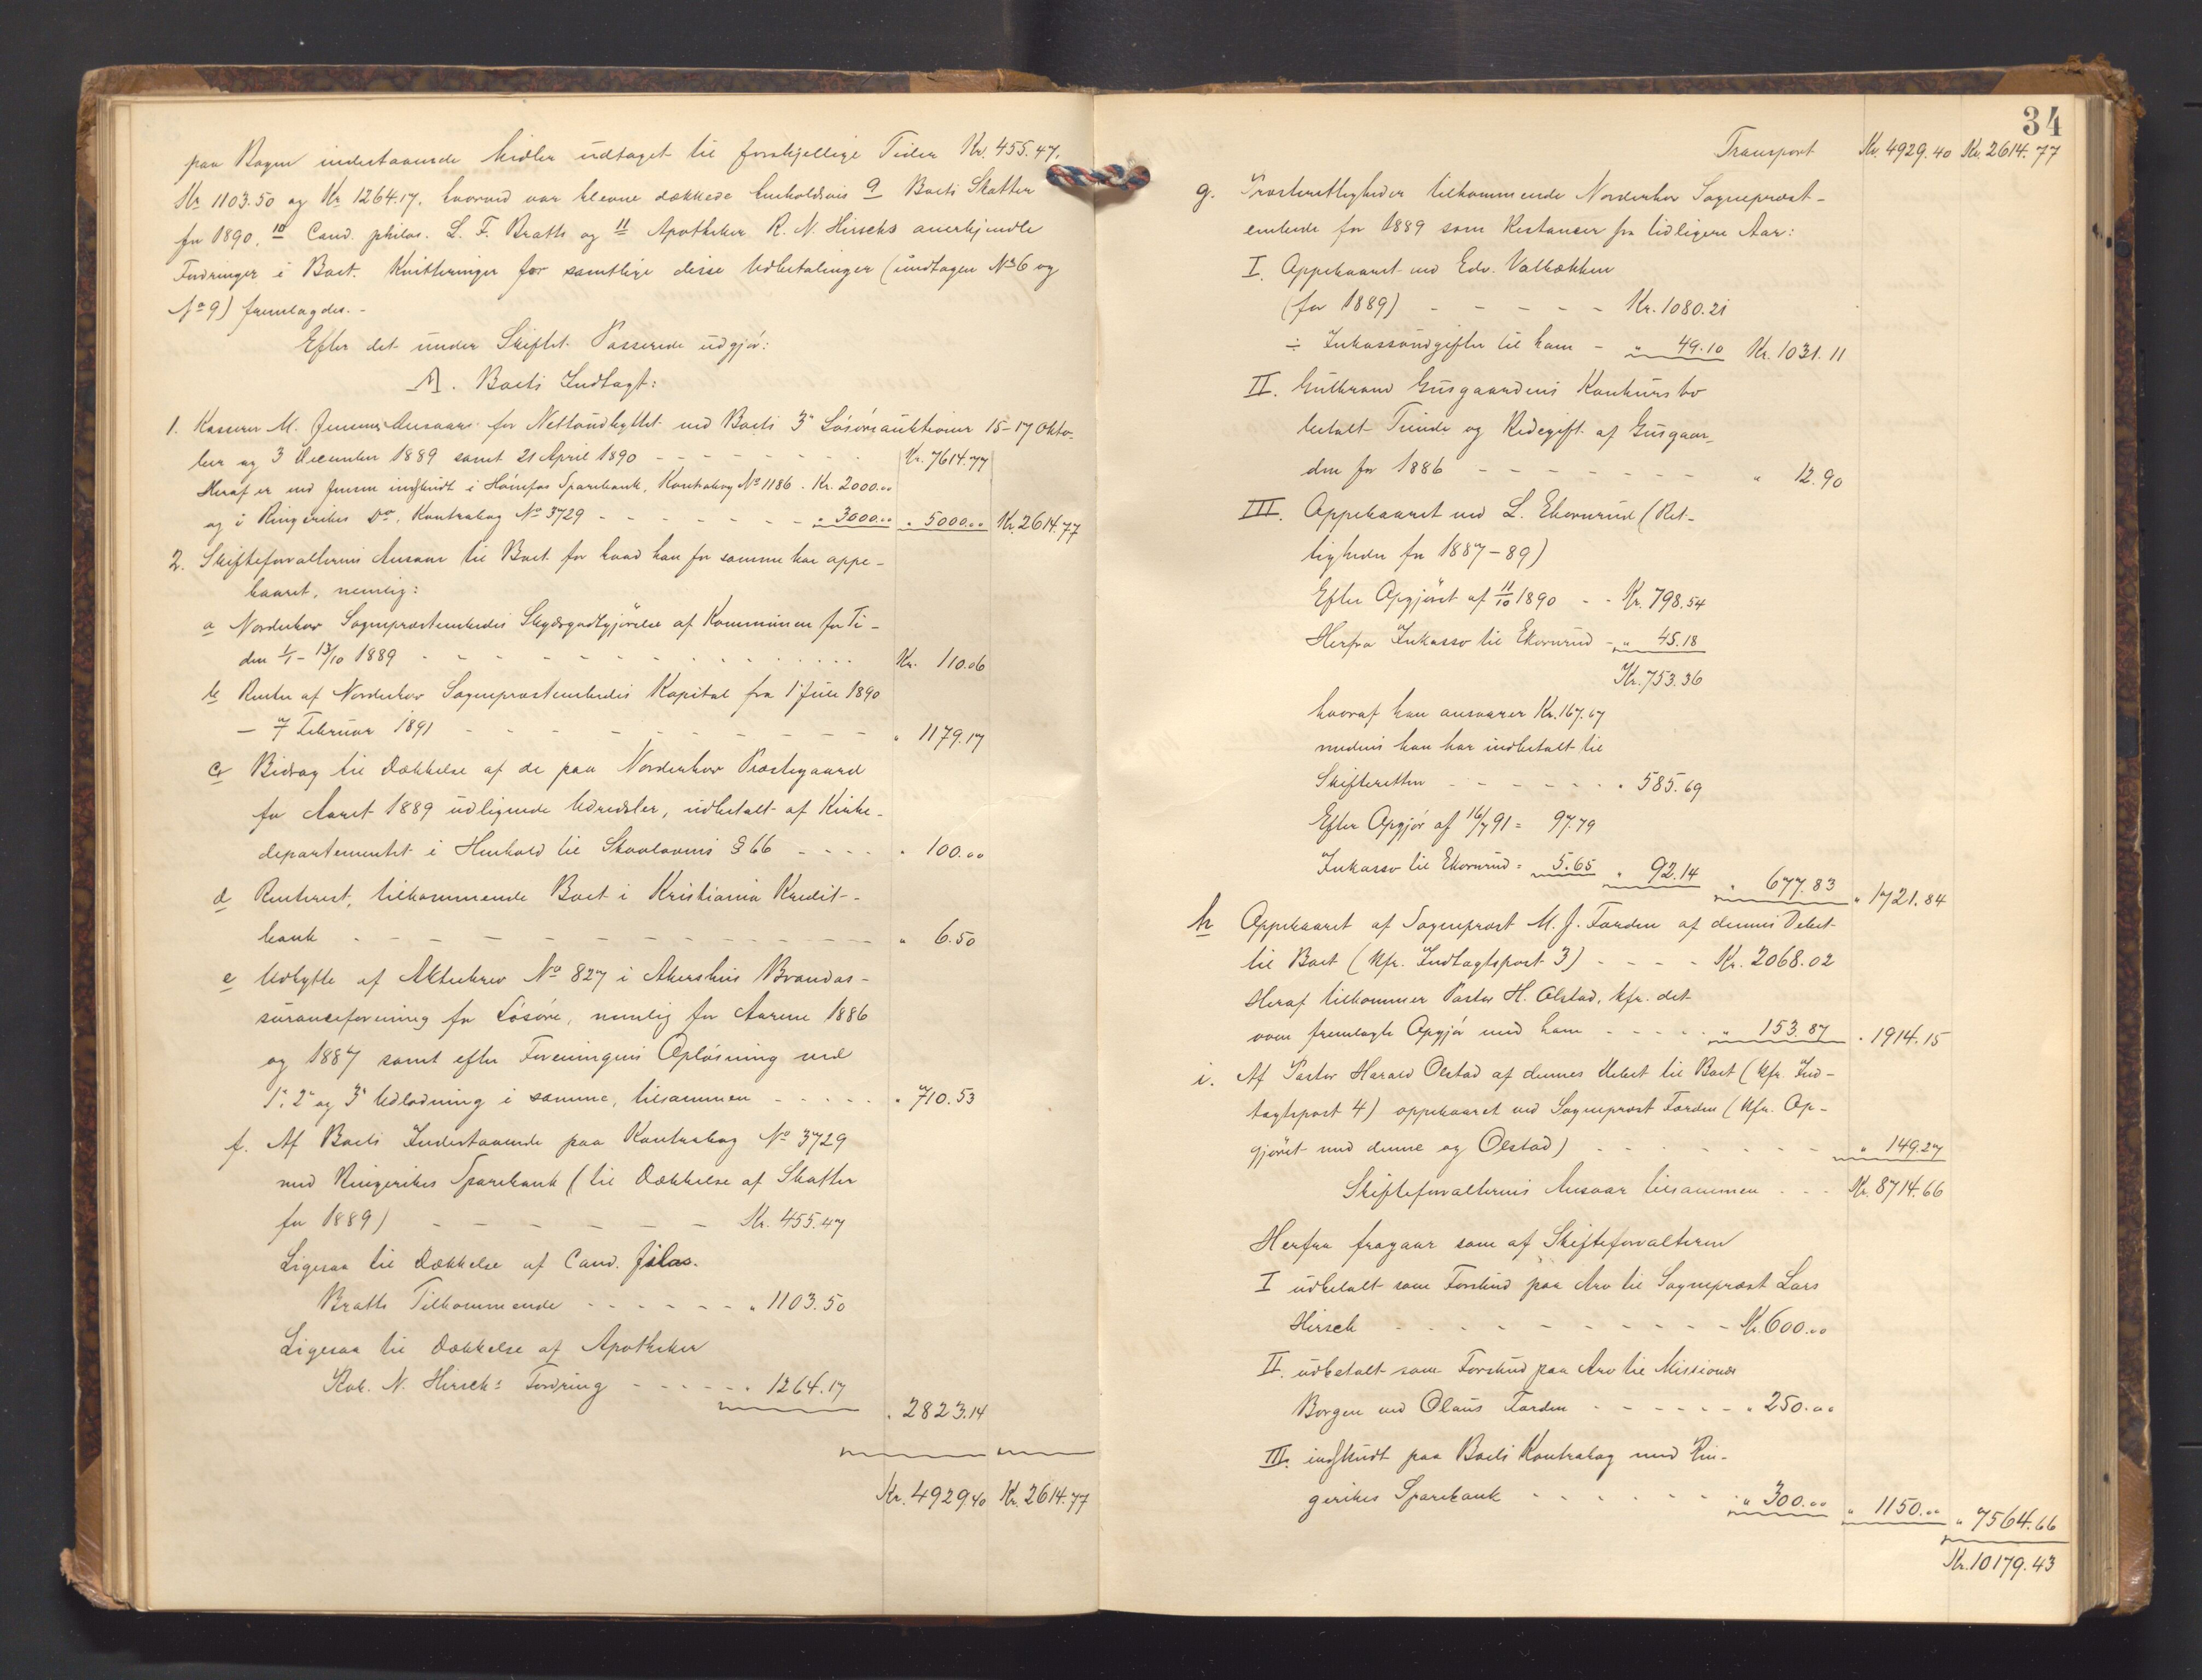 paa Bogen indestaaende Midler udtaget til forskjellige Tider Kr. 455.47,
Kr 1103.50 og Kr 1264.17, hvorved var blevne dækkede henholdsvis 9 Boets Skatter
for 1890, 10 Cand. philos. L. F. Bratts og 11 Apotheker R. N. Hirschs anerkjendte
Fordringer i Boet. Kvitteringer for samtlige disse Udbetalinger (undtagen No 6 og
No 9) fremlagdes. -
Efter det under Skiftet Passerede udgjør:
A. Boets Indtægt:
1. Kasserer M. Jensens Ansvar for Nettoudbyttet ved Boets 3de Løsøreauktioner 15-17 Okto-
ber og 3 December 1889 samt 21 April 1890 - - - - Kr. 7614.77
Heraf er ved Jensen indskudt i Hønefos Sparebank, Kontrabog No 1186 . Kr. 2000.00
og i Ringerikes Do, Kontrabog No 3729 - - - - " 3000.00 " 5000.00 Kr. 2614.77
2. Skifteforvalterens Ansvar til Boet for hvad han for samme har oppe-
baaret, nemlig:
a Norderhov Sognepræstembedes Skydsgodtgjørelse af Kommunen for Ti-
den 1/1 - 13/10 1889 - - - - Kr. 110.06
b Renter af Norderhov Sognepræstembedes Kapital fra 1 Juli 1890
- 7 Februar 1891 - - - - " 1179.17
c Bidrag til Dækkelse af de paa Norderhov Præstegaard
for Aaret 1889 udlignede Udredsler, udbetalt af Kirke-
departementet i Henhold til Skovlovens § 66 - - - - " 100.00
d Renterest, tilkommende Boet i Kristiania Kredit-
bank - - - - " 6.50
e Udbytte af Aktiebrev No 827 i Akershus Brandas-
suranceforening for Løsøre, nemlig for Aarene 1886
og 1887 samt efter Foreningens Opløsning ved
1ste, 2den og 3die Udlodning i samme, tilsammen - - - - " 710.53
f. Af Boets Indestaaende paa Kontrabog No 3729
med Ringerikes Sparebank (til Dækkelse af Skatter
for 1889) - - - - Kr. 455.47
Ligesaa til Dækkelse af Cand. filos.
Bratts Tilkommende - - - - " 1103.50
Ligesaa til Dækkelse af Apotheker
Rob. N. Hirschs Fordring - - - - " 1264.17
" 2823.14
Kr. 4929.40 Kr. 2614.77
34
Transport Kr. 4929.40 Kr. 2614.77
g. Præsterettigheder tilkommende Norderhov Sognepræst-
embede for 1889 som Restancer fra tidligere Aar:
I. Oppebaaret ved Edv. Valbækken
(for 1889) - - - - Kr. 1080.21
÷ Inkassoudgifter til ham - " 49.10 Kr. 1031.11
II. Gulbrand Gusgaardens Konkursbo
betalt Tiende og Redegift af Gusgaar-
den for 1886 - - - - " 12.90
III. Oppebaaret ved L. Ekornrud (Ret-
tigheder for 1887-89)
Efter Opgjøret af 11/10 1890 - - Kr. 798.54
Herfra Inkasso til Ekornrud - " 45.18
Kr. 753.36
hvoraf han ansvarer Kr. 167.67
medens han har indbetalt til
Skifteretten - - - - " 585.69
Efter Opgjør af 16/7 91 = 97.79
Inkasso til Ekornrud = 5.65 " 92.14 " 677.83 " 1721.84
h Oppebaaret af Sognepræst M. J. Færden af dennes Debet
til Boet (kfr. Indtægtspost 3) - - - - Kr. 2068.02
Heraf tilkommer Pastor H. Olstad, kfr. det
oven fremlagte Opgjør med ham - - - - " 153.87 " 1914.15
i. Af Pastor Harald Olstad af dennes Debet til Boet (kfr. Ind-
tægtspost 4) oppebaaret ved Sognepræst Færden (kfr. Op-
gjøret med denne og Olstad) - - - - " 149.27
Skifteforvalterens Ansvar tilsammen - - - Kr. 8714.66
Herfra fragaar som af Skifteforvalteren
I udbetalt som Forskud paa Arv til Sognepræst Lars
Hirsch - - - - Kr. 600.00
II. udbetalt som Forskud paa Arv til Missionær
Borgen ved Olaus Færden - - - - " 250.00
III. indskudt paa Boets Kontrabog med Rin-
gerikes Sparebank - - - - " 300.00 " 1150.00 " 7564.66
Kr. 10179.43